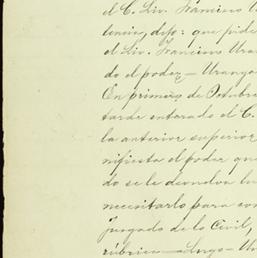 el C. Liv. Francisco U
tencia, dijo: que pide
el Liv. Francisco Uran
do el poder — Uranga
En primero de Octubre
tarde enterado el C.
la anterior superior
nifiesta el poder que
do se le devolva la
necesitarlo para con
juzgado de lo Civil,
rúbrica — Lugo — Ur